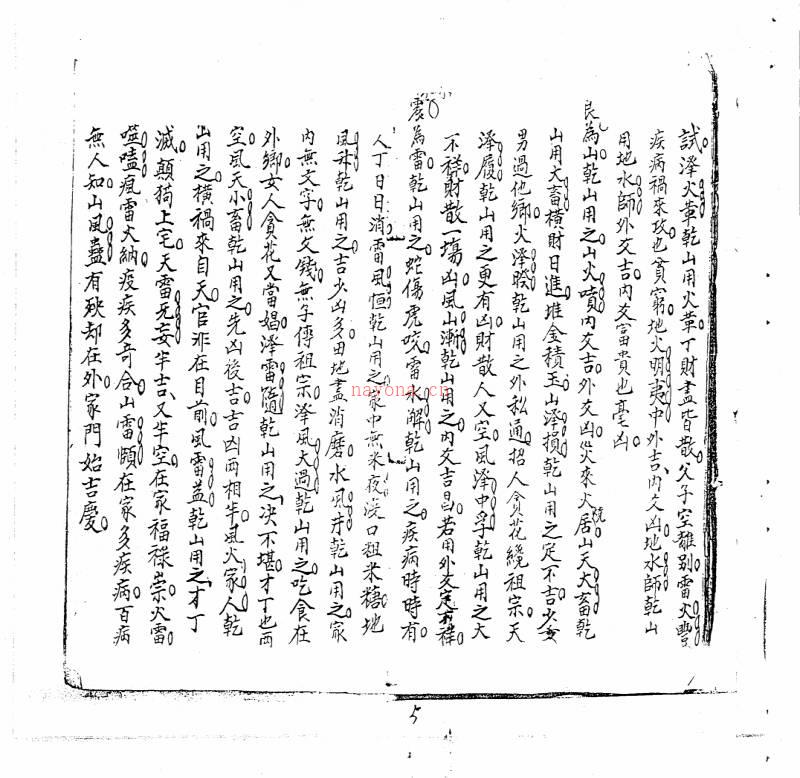 試澤火革乾山用火革丁財盡皆散父子空離别雷火豐
疾病禍來䒶也貧窮地火明夷中外吉内爻凶地水師乾山
用地水師外爻吉内爻富貴也毫凶
艮為山乾山用之山火噴内爻吉外爻凶災來火居山天大畜乾
山用大畜横財日進堆金積玉山澤損乾山用之定不吉少女
男過他鄉火澤睽乾山用之外私通招人貪花纔祖宗天
澤履乾山用之更有凶財散人又空風澤中孚乾山用之大
不祥財散一場凶風山漸乾山用之内爻吉昌若用外爻定不祥
震為雷乾山用之蛇傷虎咬雷水解乾山用之疾病時時有
人丁日日消雷風恒乾山用之家中無米夜淡口粗米糖地
風升乾山用之吉少凶多田地盡消磨水風井乾山用之家
内無文字無文錢無子傳祖宗澤風大過乾山用之吃食在
外鄉女人貪花又當娼澤雷隨乾山用之决不堪才丁也兩
空風天小畜乾山用之先凶後吉吉凶兩相半風火家人乾
山用之横禍來自天官非在目前風雷益乾山用之才丁
滅顛猗上宅天雷无妄半吉又半空在家福祿崇火雷
噬嗑瘋雷火納疫疾多奇合山雷頤在家多疾病百病
無人知山風蠱有殃却在外家門始吉慶
nayona.cn
5